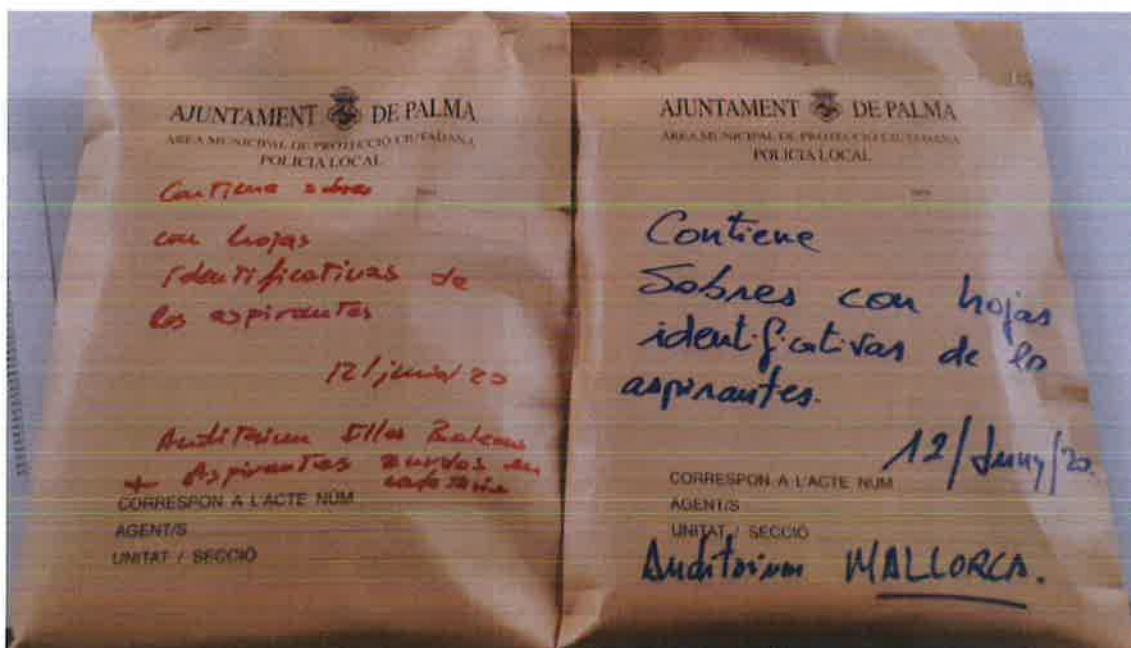 AJUNTAMENT DE PALMA
ÀREA MUNICIPAL DE PROTECCIÓ CIUTADANA
POLICIA LOCAL
Contiene sobres
con hojas
identificativas de
los aspirantes
12/junio/20
Auditorium Illes Balears
+ Aspirantes zurdos en
cafetería
CORRESPON A L'ACTE NÚM
AGENT/S
UNITAT / SECCIÓ
AJUNTAMENT DE PALMA
ÀREA MUNICIPAL DE PROTECCIÓ CIUTADANA
POLICIA LOCAL
Contiene
Sobres con hojas
identificativas de los
aspirantes.
12/Juny/20.
CORRESPON A L'ACTE NÚM
AGENT/S
UNITAT / SECCIÓ
Auditorium MALLORCA.